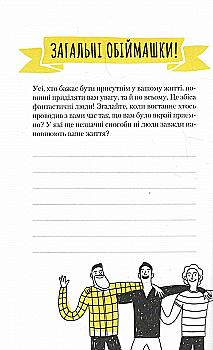 ЗАГАЛЬНІ ОБІЙМАШКИ!
Усі, хто бажає бути присутнім у вашому житті, по-
винні приділяти вам увагу, та й по всьому. Це збіса
фантастичні люди! Згадайте, коли востаннє хтось
проводив з вами час так, що вам було вкрай приєм-
но? У які ще незначні способи ці люди завжди на-
повнюють ваше життя?